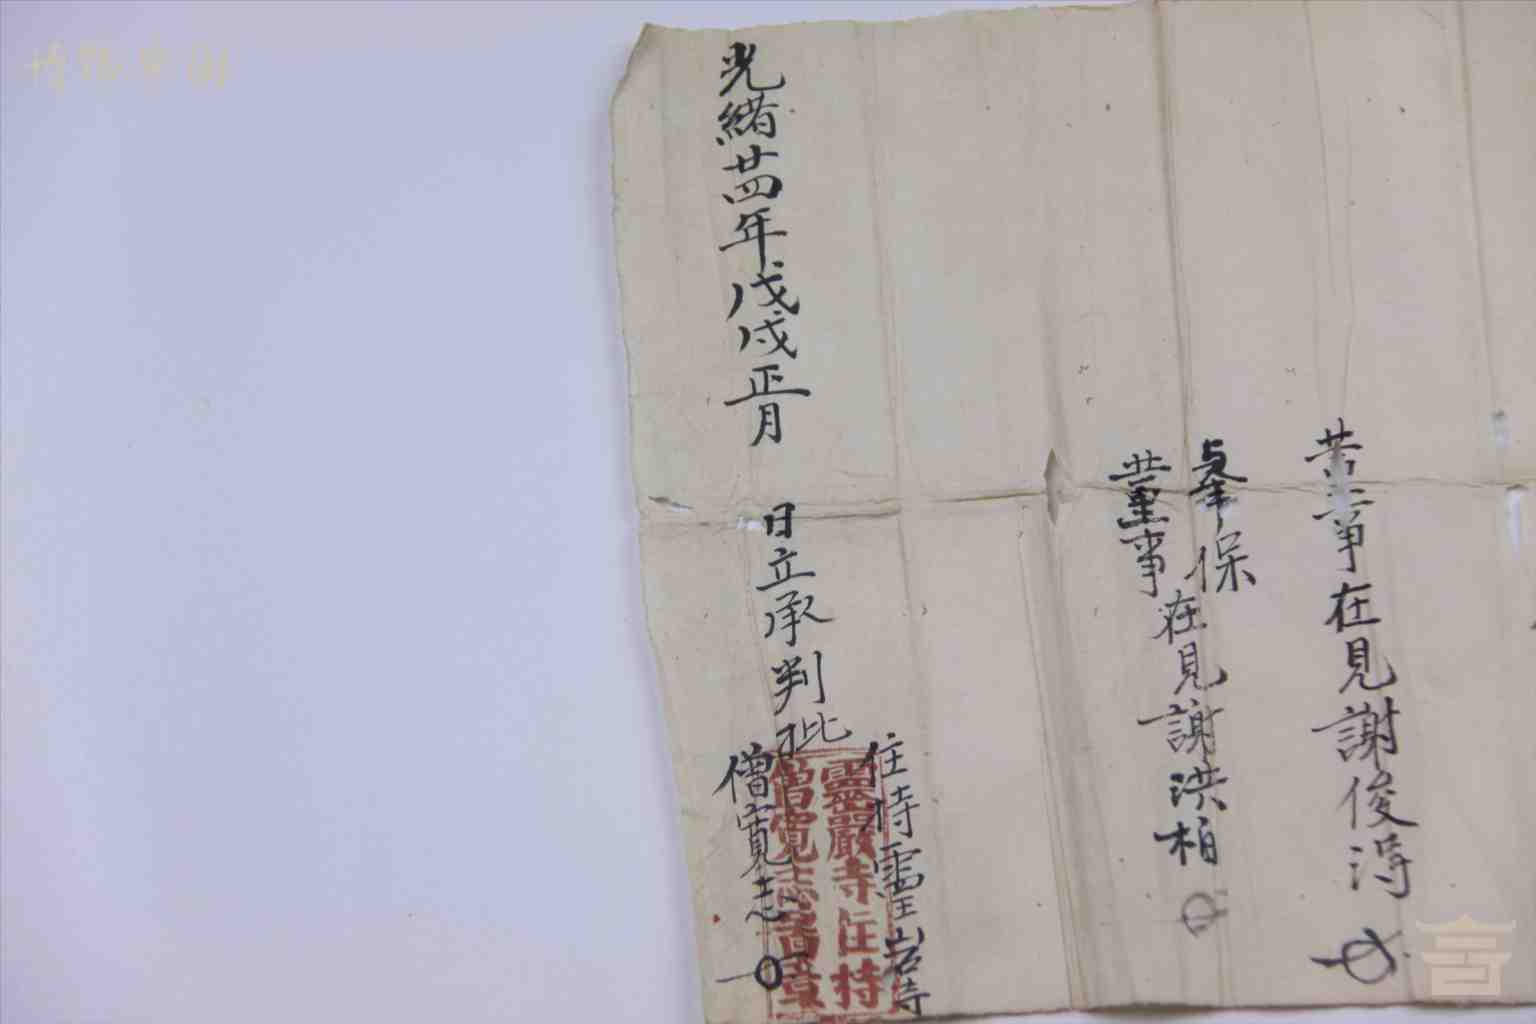 董事在見謝俊得
保
董事在見謝洪柏
住持靈岩寺
光緒廿四年戊戌正月 日立承判批
僧寬志
靈嚴寺住持
僧寬志圖章